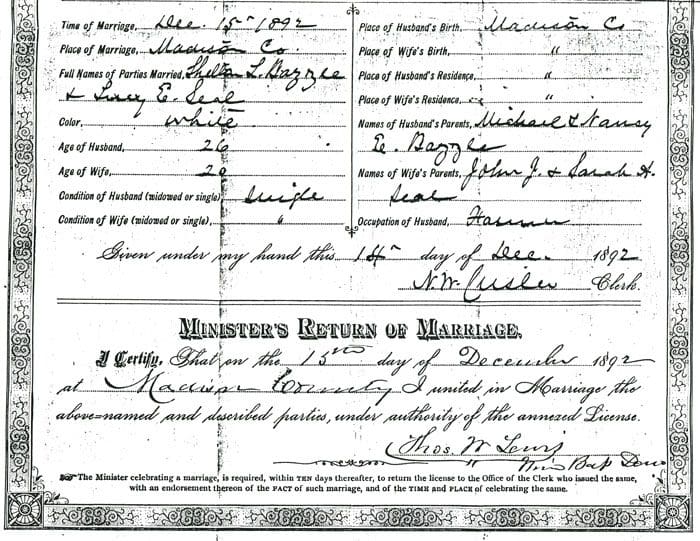 Time of Marriage, Dec. 15th 1892
Place of Marriage, Madison Co.
Full Names of Parties Married, Shelton L. Bazzle
& Lucy E. Seal
Color, White
Age of Husband, 26
Age of Wife, 20
Condition of Husband (widowed or single) Single
Condition of Wife (widowed or single), "
Place of Husband's Birth, Madison Co
Place of Wife's Birth, "
Place of Husband's Residence, "
Place of Wife's Residence, "
Names of Husband's Parents, Michael & Nancy
E. Bazzle
Names of Wife's Parents, John J. & Sarah A.
Seal
Occupation of Husband, Farmer
Given under my hand this 14th day of Dec. 1892
N. W. Crisler Clerk.
MINISTER'S RETURN OF MARRIAGE.
I Certify, That on the 15th day of December 1892
at Madison County I united in Marriage the
above=named and described parties, under authority of the annexed License.
Thos. W. Lewis
Bap
The Minister celebrating a marriage, is required, within TEN days thereafter, to return the license to the Office of the Clerk who issued the same,
with an endorsement thereon of the FACT of such marriage, and of the TIME and PLACE of celebrating the same.